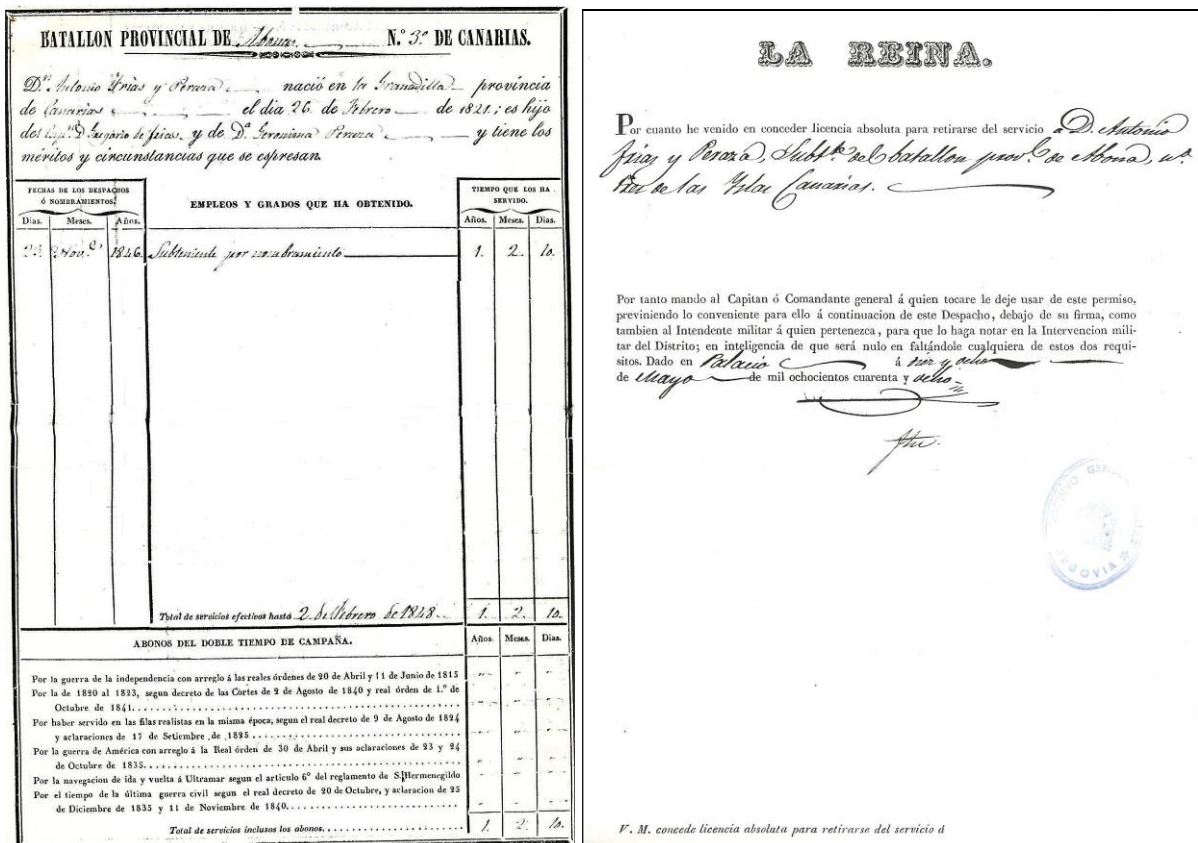 BATALLON PROVINCIAL DE Abona N.º 3º DE CANARIAS.
D.n Antonio Frias y Peraza nació en la Granadilla provincia
de Canarias el dia 26 de Febrero de 1821; es hijo
del Cap.n D. Gregorio de frias y de D.ª Geronima Peraza y tiene los
méritos y circunstancias que se espresan.
FECHAS DE LOS DESPACHOS Ó NOMBRAMIENTOS.
EMPLEOS Y GRADOS QUE HA OBTENIDO.
TIEMPO QUE LOS HA SERVIDO.
Dias. Meses. Años. Años. Meses. Dias.
Nov.e 1846. Subteniente por nombramiento 1. 2. 10.
Total de servicios efectivos hasta 2 de Febrero de 1848. 1. 2. 10.
ABONOS DEL DOBLE TIEMPO DE CAMPAÑA. Años. Meses. Dias.
Por la guerra de la independencia con arreglo á las reales órdenes de 20 de Abril y 11 de Junio de 1815
Por la de 1820 al 1823, segun decreto de las Cortes de 2 de Agosto de 1840 y real órden de 1.º de
Octubre de 1841.
Por haber servido en las filas realistas en la misma época, segun el real decreto de 9 de Agosto de 1824
y aclaraciones de 17 de Setiembre de 1825
Por la guerra de América con arreglo á la Real órden de 30 de Abril y sus aclaraciones de 23 y 24
de Octubre de 1835.
Por la navegacion de ida y vuelta á Ultramar segun el artículo 6º del reglamento de S. Hermenegildo
Por el tiempo de la última guerra civil segun el real decreto de 20 de Octubre, y aclaracion de 25
de Diciembre de 1835 y 11 de Noviembre de 1840.
Total de servicios inclusos los abonos. 1. 2. 10.
LA REINA.
Por cuanto he venido en conceder licencia absoluta para retirarse del servicio á D. Antonio
frias y Peraza, Subt.te del batallon prov.l de Abona, n.º
de las Yslas Canarias.
Por tanto mando al Capitan ó Comandante general á quien tocare le deje usar de este permiso,
previniendo lo conveniente para ello á continuacion de este Despacho, debajo de su firma, como
tambien al Intendente militar á quien pertenezca, para que lo haga notar en la Intervencion mili-
tar del Distrito; en inteligencia de que será nulo en faltándole cualquiera de estos dos requi-
sitos. Dado en Palacio á diez y ocho
de Mayo de mil ochocientos cuarenta y ocho
SEGOVIA
V. M. concede licencia absoluta para retirarse del servicio á